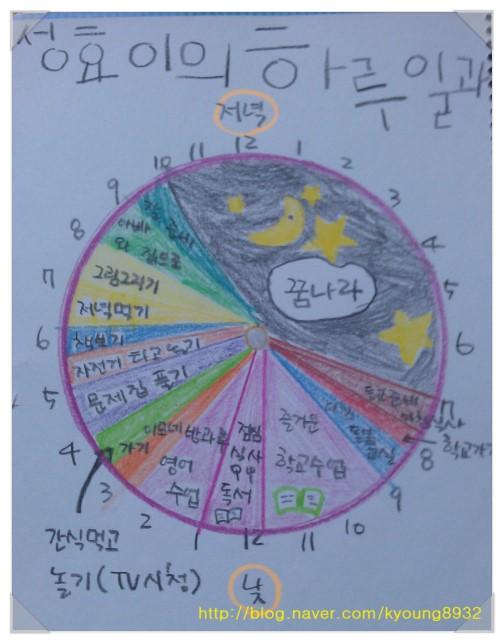 성효이의 하루일과
저녁
12
1
2
3
4
5
6
7
8
9
10
11
12
1
2
3
4
5
6
7
8
9
10
11
꿈나라
학교가기
즐거운
학교수업
점심
식사
독서
영어
수업
가기
문제집 풀기
자전거 타고 놀기
책읽기
저녁먹기
그림그리기
아빠
와
간식먹고
놀기(TV시청)
낮
http://blog.naver.com/kyoung8932